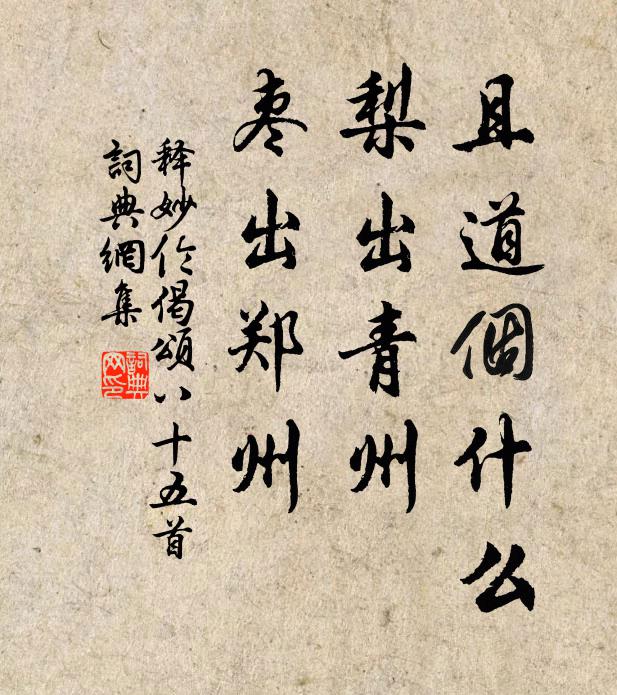 且道個什么
梨出青州
枣出郑州
释妙伦偈頌八十五首
詞典網集
詞典网印